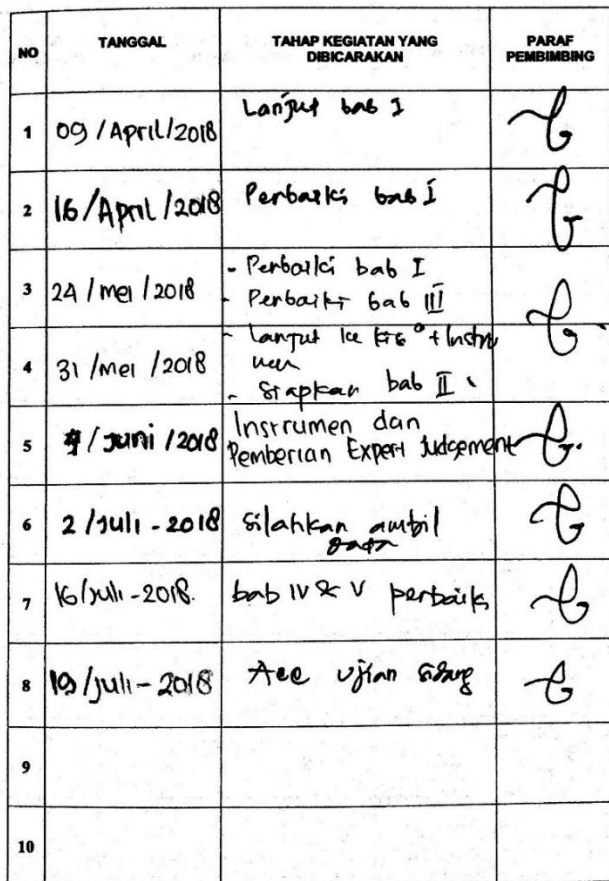 NO TANGGAL TAHAP KEGIATAN YANG DIBICARAKAN PARAF PEMBIMBING
1 09/April/2018 Lanjut bab I
2 16/April/2018 Perbaiki bab I
3 24/mei/2018 - Perbaiki bab I
- Perbaiki bab III
4 31/mei/2018 - Lanjut ke kis° + Instru
men
- Siapkan bab II
5 7/Juni/2018 Instrumen dan
Pemberian Expert Judgement
6 2/Juli-2018 Silahkan ambil
data
7 16/Juli-2018. bab IV & V perbaiki
8 19/Juli-2018 Acc ujian sidang
9
10